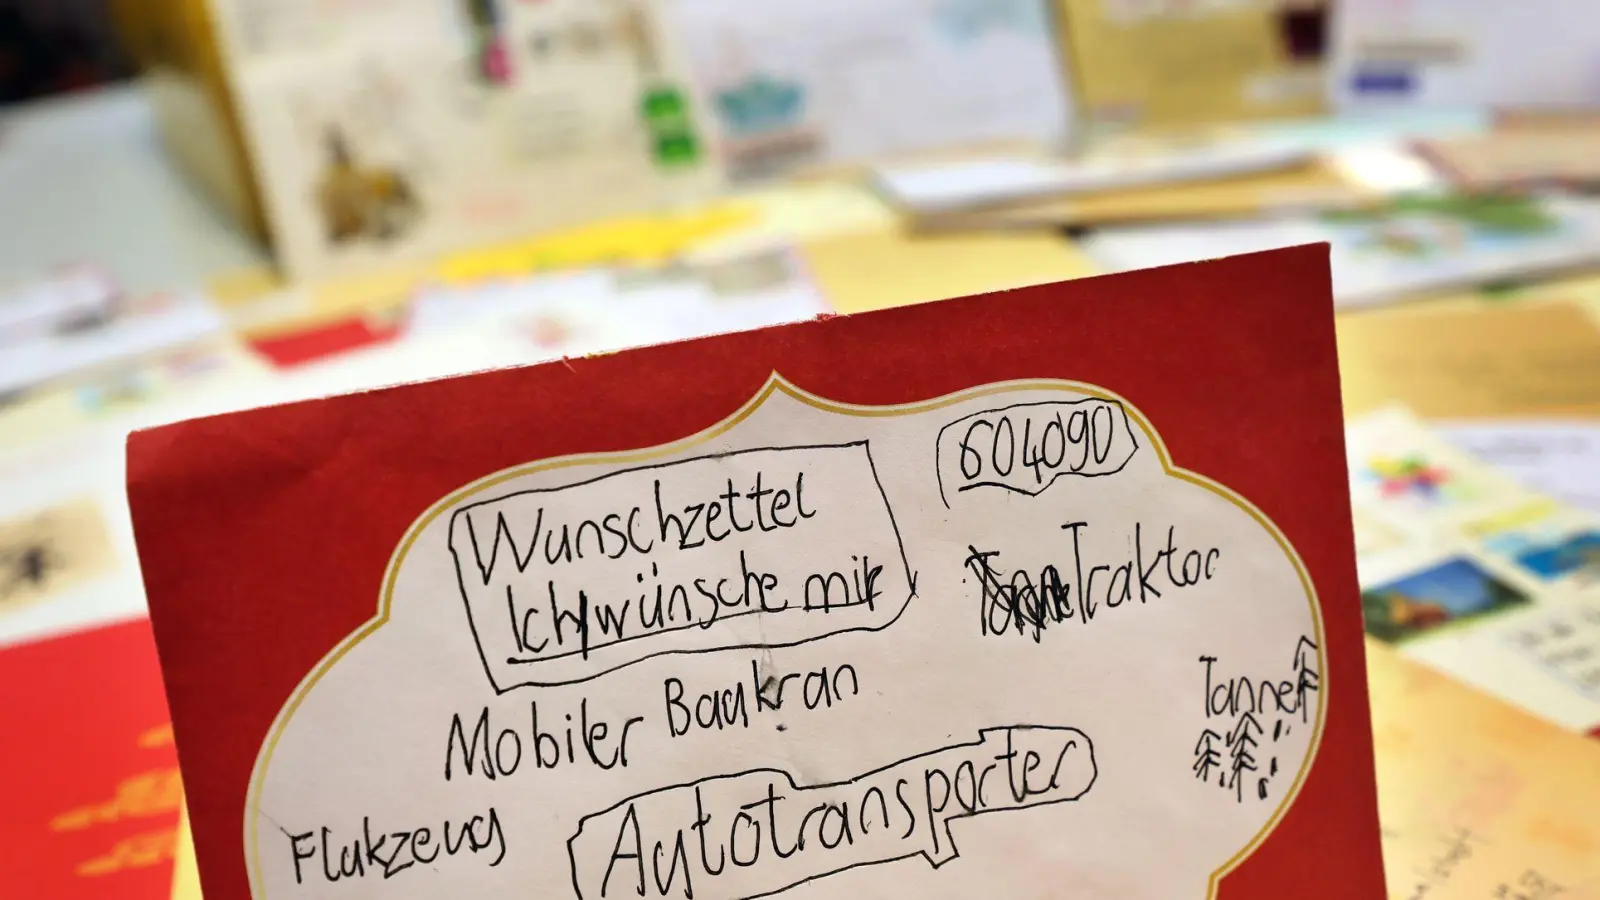 Wunschzettel
Ich wünsche mir
604090
Traktor
Mobiler Baukran
Tannen
Flukzeug
Autotransporter